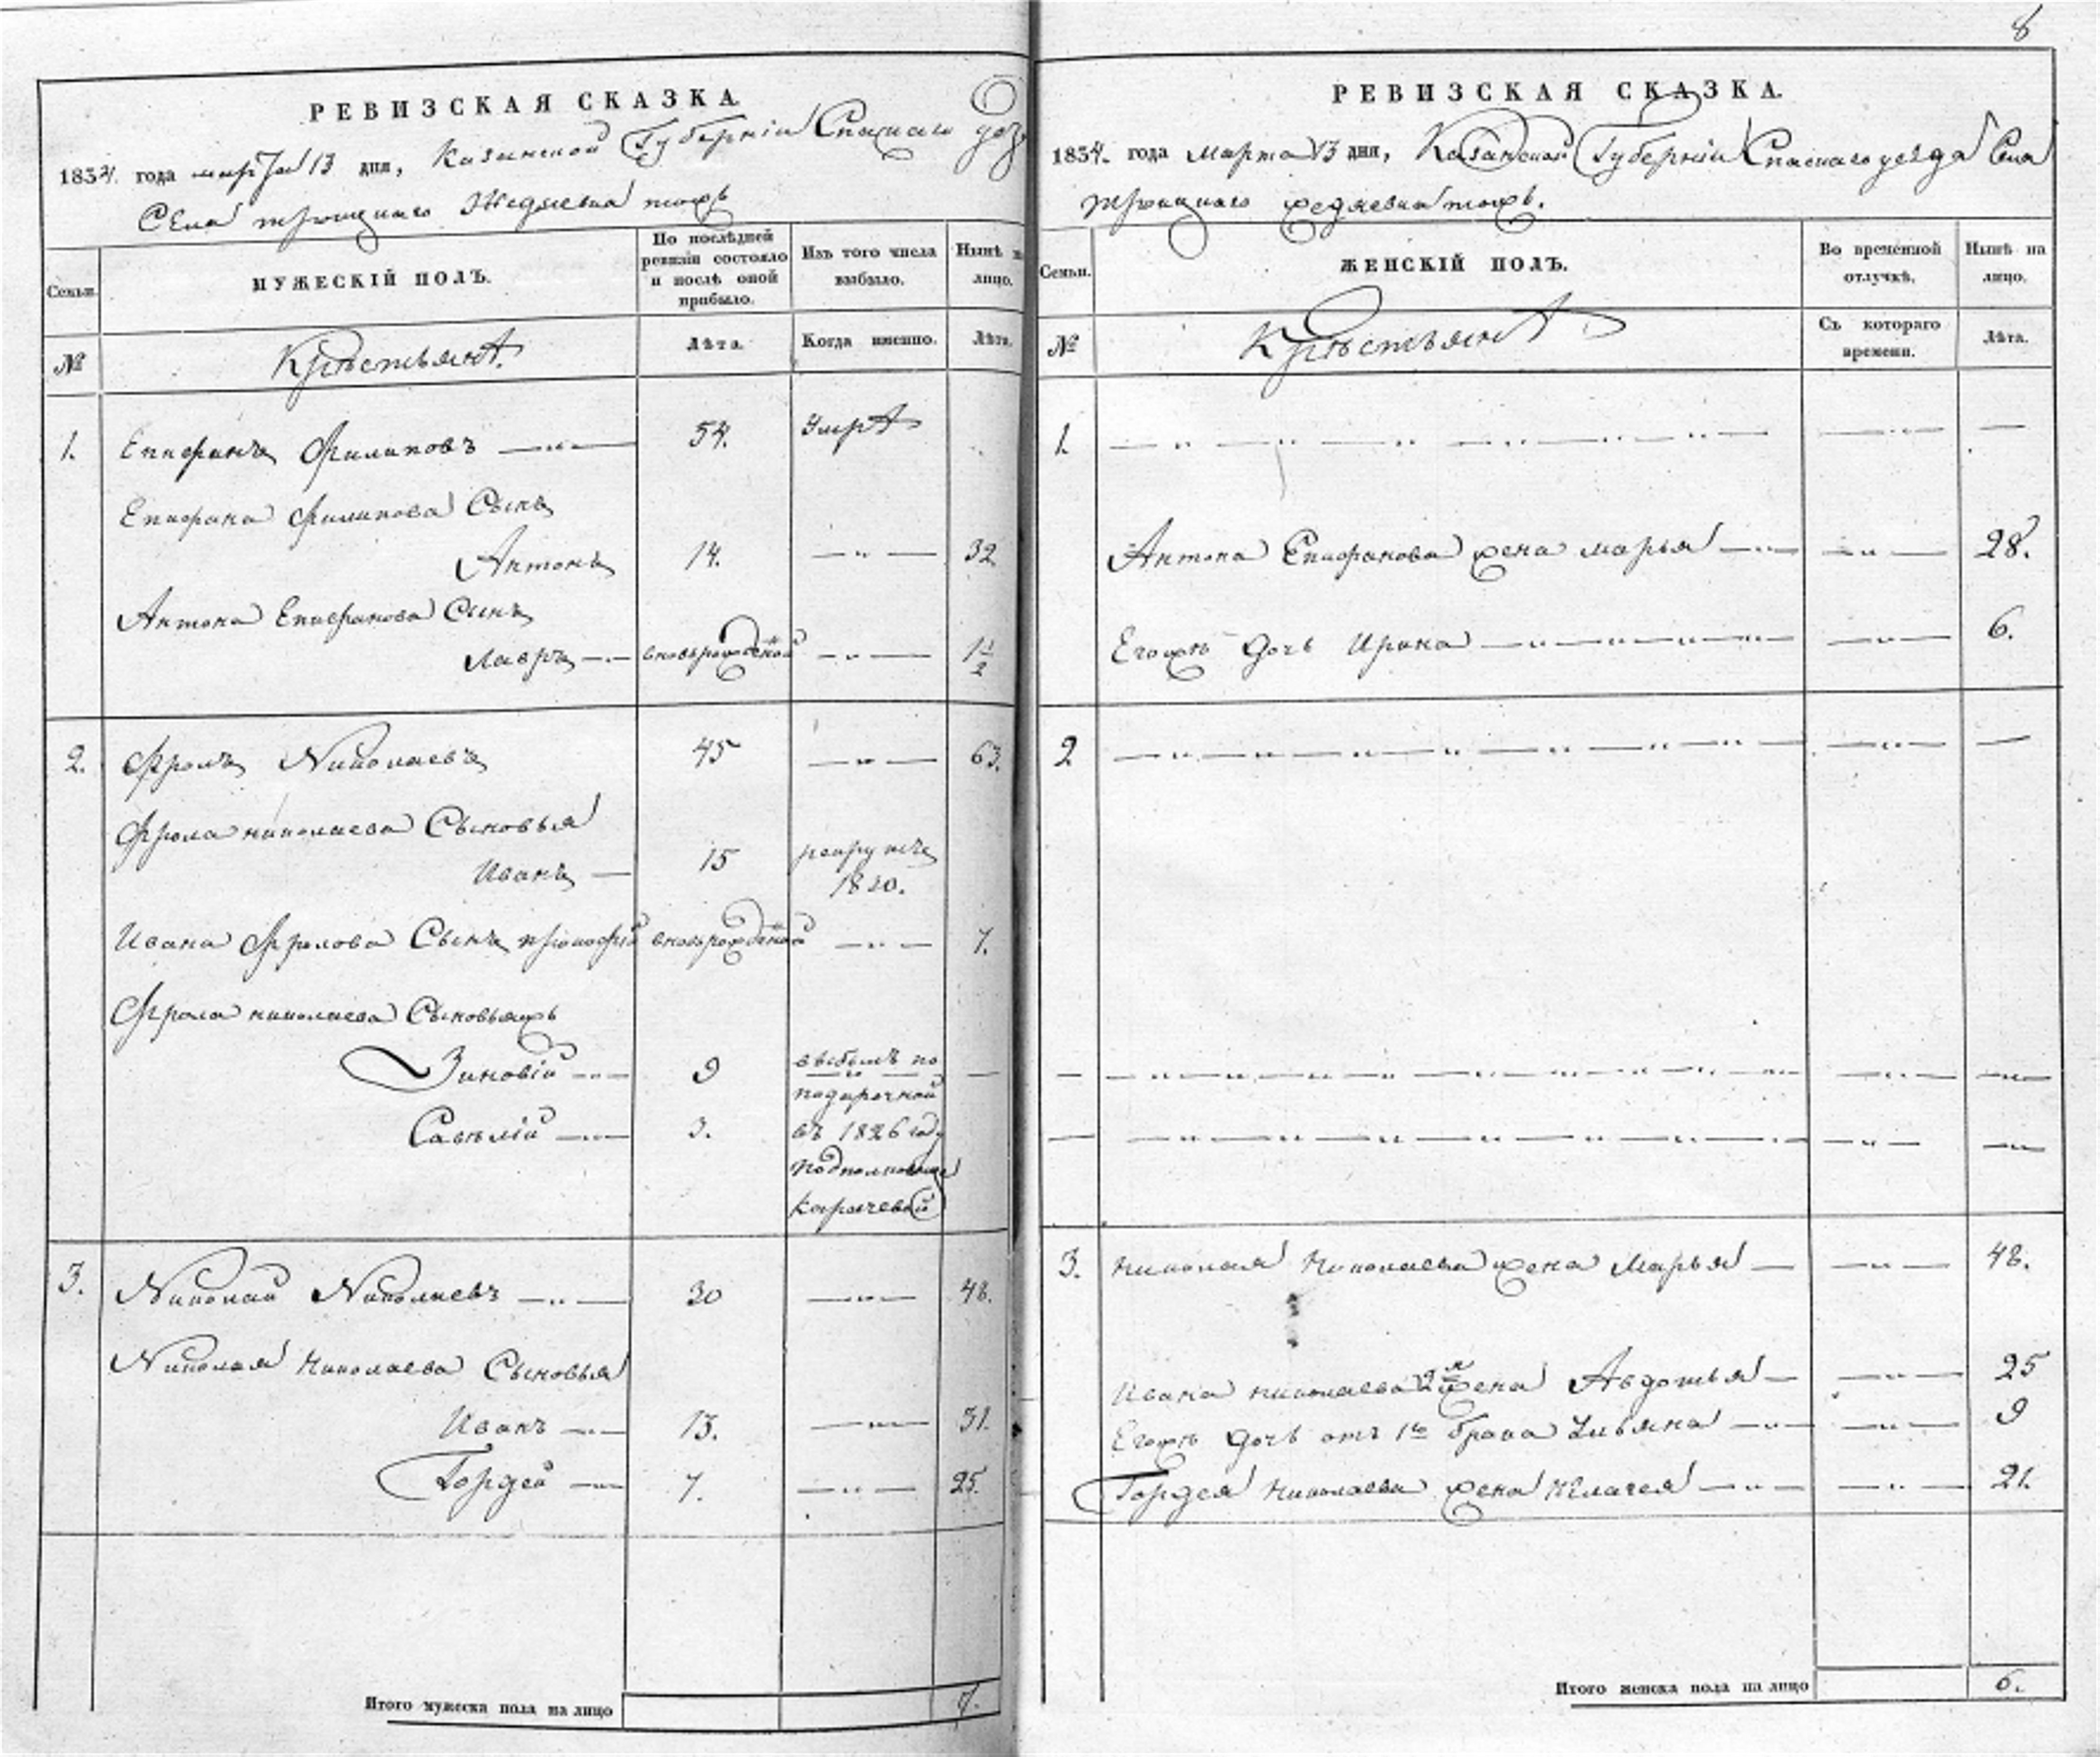 8
РЕВИЗСКАЯ СКАЗКА.
1834. года марта 13 дня, Казанской Губернiи Спаскаго уез
Села Троицкаго Жедяевка тожъ
Семьи.
МУЖЕСКIЙ ПОЛЪ.
По послѣдней ревизiи состояло и послѣ оной прибыло.
Изъ того числа выбыло.
Нынѣ на лицо.
№
Крѣстьянѣ.
Лѣта.
Когда именно.
Лѣта.
1. Епифанъ Филиповъ 54. Умрѣ
Епифана Филипова Сынъ
Антонъ 14. 32
Антона Епифанова Сынъ
Лавръ вновьрожденой 1 1/2
2. Фролъ Николаевъ 45 63.
Фрола Николаева Сыновья
Иванъ 15 рекрутъ
1820.
Ивана Фролова Сынъ вновьрожденой 7.
Фрола николаева Сыновьяжъ
Зиновiй 9 выбылъ по
Савѣлiй 3. въ 1826 году
3. Николай Николаевъ 30 48.
Николая Николаева Сыновья
Иванъ 13. 31.
Гордей 7. 25.
Итого мужеска пола на лицо 7.
РЕВИЗСКАЯ СКАЗКА.
1834. года марта 13 дня, Казанской Губернiи Спаскаго уезда Села
Троицкаго жедяевкатожъ.
Семьи.
ЖЕНСКIЙ ПОЛЪ.
Во временной отлучкѣ.
Нынѣ на лицо.
№
Крѣстьянѣ
Съ котораго времени.
Лѣта.
1.
Антона Епифанова жена марья 28.
Егожъ дочь Ирина 6.
2
3. Николая Николаева жена Марья 48.
Ивана николаева 2я жена Авдотья 25
Егожъ дочь отъ 1го брака Ульяна 9
Гордея Николаева жена 21.
Итого женска пола на лицо 6.